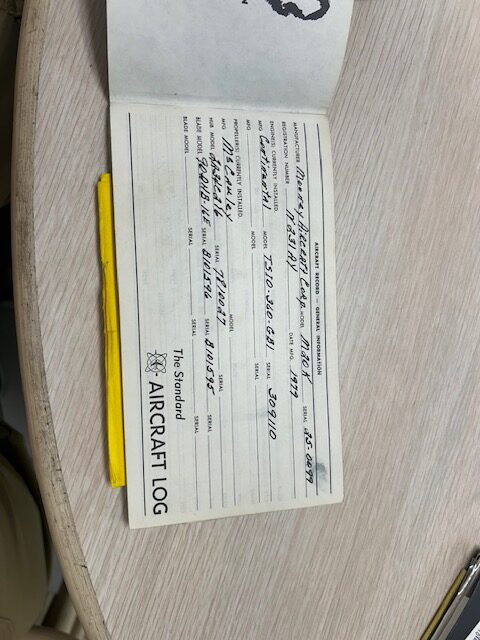 AIRCRAFT RECORD — GENERAL INFORMATION
MANUFACTURER Mooney Aircraft Corp. MODEL M20K SERIAL 25-0699
REGISTRATION NUMBER N231AY DATE MFG. 1979
ENGINE(S) CURRENTLY INSTALLED:
MFG Continental MODEL TSIO-360-GB1 SERIAL 309110
MFG MODEL SERIAL
PROPELLER(S) CURRENTLY INSTALLED:
MFG McCauley MODEL
HUB MODEL SERIAL SERIAL
BLADE MODEL 90DHB-16E SERIAL B101596 SERIAL B101595 SERIAL
BLADE MODEL SERIAL SERIAL SERIAL
The Standard
AIRCRAFT LOG